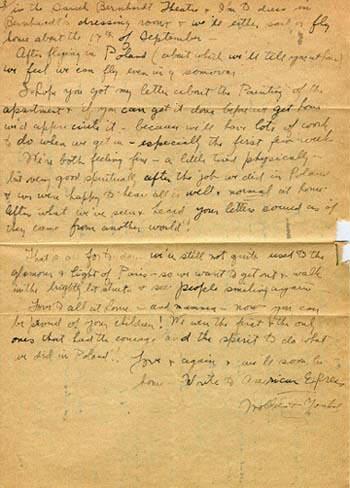 in the Sarah Bernhardt Theatre & I'm to dress in
Bernhardt's dressing room & we'll either sail or fly
home about the 17th of September —
After flying in Poland (about which we'll tell you at home)
we feel we can fly even in a
I hope you got my letter about the Painting of the
apartment & if you can get it done before we get home
we'd appreciate it — because we'll have lots of work
to do when we get in — especially the first few weeks
We're both feeling fine — a little tired physically —
but very good spiritually after the job we did in Poland
& we were happy to hear all is well & normal at home
After what we've seen & heard, your letters sound as if
they came from another world!
That's all for to-day — we're still not quite used to the
glamour & light of Paris — so we want to get out & walk
in the brightly lit streets & see people smiling again
Love to all at home — and — now you can
be proud of your children! We were the first & the only
ones that had the courage and the spirit to do what
we did in Poland!
Love & again & we'll soon be
home — Write to American Express
Molly &